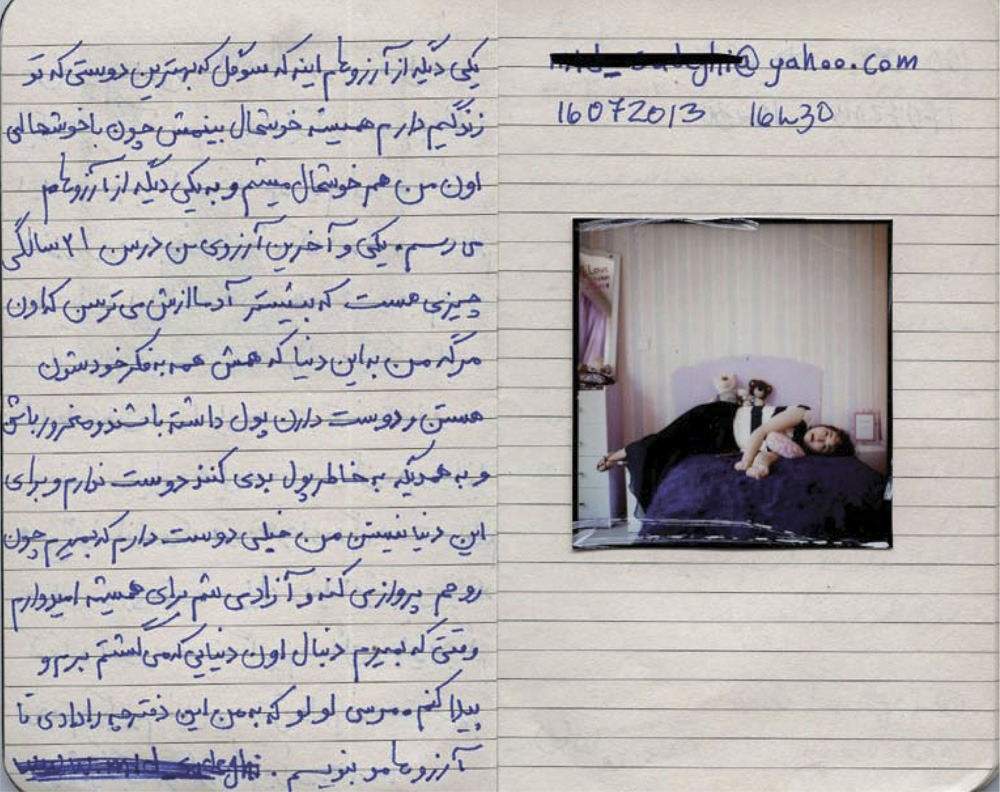 یکی دیگه از آرزوهام اینه که سوگل که بهترین دوستی که تو
زندگیم دارم همیشه خوشحال ببینمش چون با خوشحالی
اون من هم خوشحال میشم و به یکی دیگه از آرزوهام
می رسم. یکی و آخرین آرزوی من در سن ۲۱ سالگی
چیزی هست که بیشتر آدما ازش می ترسن که اون
مرگه من به این دنیا که همش همه به فکر خودشون
هستن و دوست دارن پول داشته باشند و مغرور باشن
و به همدیگه به خاطر پول بدی کنند دوست ندارم و برای
این دنیا نیستن من خیلی دوست دارم که بمیرم چون
روحم پرواز می کنه و آزاد می شم برای همیشه امیدوارم
وقتی که بمیرم دنبال اون دنیایی که می گشتم برم و
پیدا کنم. مرسی لولو که به من این دفترچه را دادی تا
آرزوهامو بنویسم.
@yahoo.com
16072013 16h30